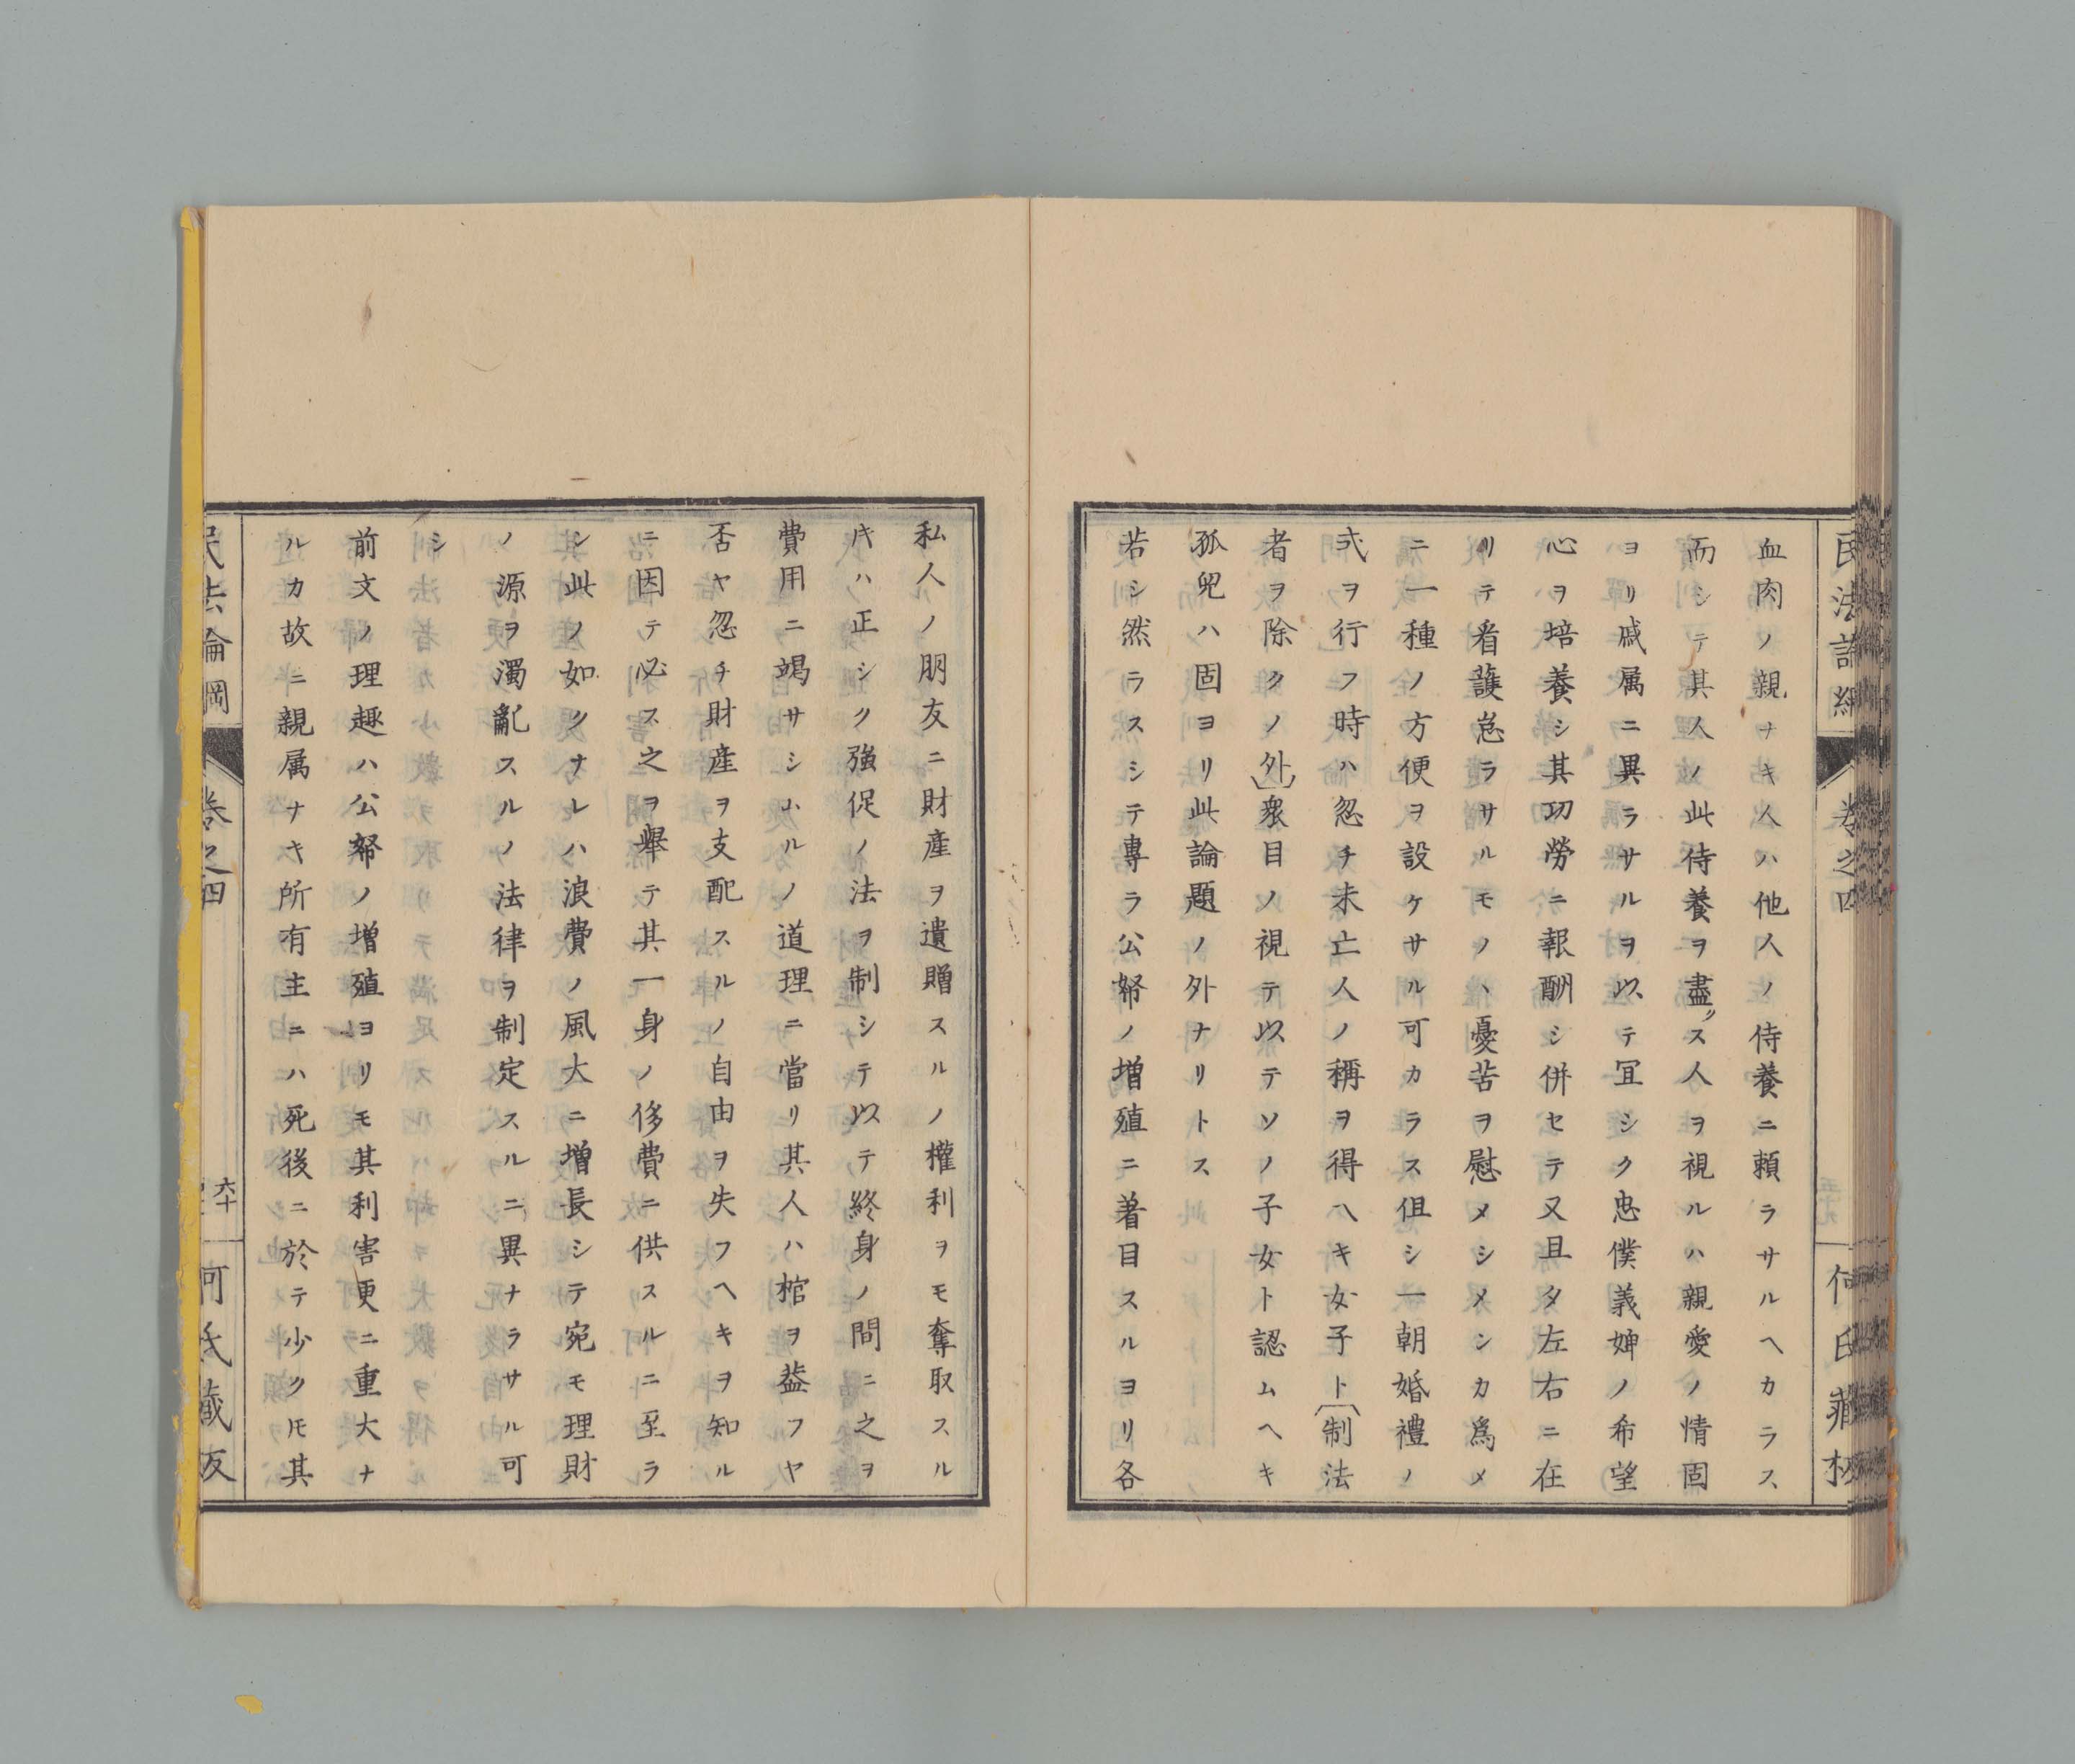 民法論綱
卷之四
何氏藏板
血肉ノ親ナキ人ハ他人ノ侍養ニ賴ラサルヘカラス
而シテ其人ノ此侍養ヲ盡ス人ヲ視ルハ親愛ノ情固
ヨリ戚属ニ異ラサルヲ以テ冝シク忠僕義婢ノ希望
心ヲ培養シ其功勞ニ報酬シ併セテ又且タ左右ニ在
リテ看護怠ラサルモノヽ憂苦ヲ慰メシメンカ爲メ
ニ一種ノ方便ヲ設ケサル可カラス伹シ一朝婚禮ノ
式ヲ行フ時ハ忽チ未亡人ノ稱ヲ得ヘキ女子ト〔制法
者ヲ除クノ外〕衆目ノ視テ以テソノ子女ト認ムヘキ
孤兒ハ固ヨリ此論題ノ外ナリトス
若シ然ラスシテ專ラ公帑ノ增殖ニ著目スルヨリ各
私人ノ朋友ニ財產ヲ遺贈スルノ權利ヲモ奪取スル
片ハ正シク強促ノ法ヲ制シテ以テ終身ノ間ニ之ヲ
費用ニ竭サシムルノ道理ニ當リ其人ハ棺ヲ葢フヤ
否ヤ忽チ財産ヲ支配スルノ自由ヲ失フヘキヲ知ル
ニ因テ必ス之ヲ舉テ其一身ノ侈費ニ供スルニ至ラ
ン此ノ如クナレハ浪費ノ風大ニ增長シテ宛モ理財
ノ源ヲ濁亂スルノ法律ヲ制定スルニ異ナラサル可
シ
前文ノ理趣ハ公帑ノ增殖ヨリモ其利害更ニ重大ナ
ルカ故ニ親属ナキ所有主ニハ死後ニ於テ少クモ其
民法論綱
卷之四
六十
何氏藏板